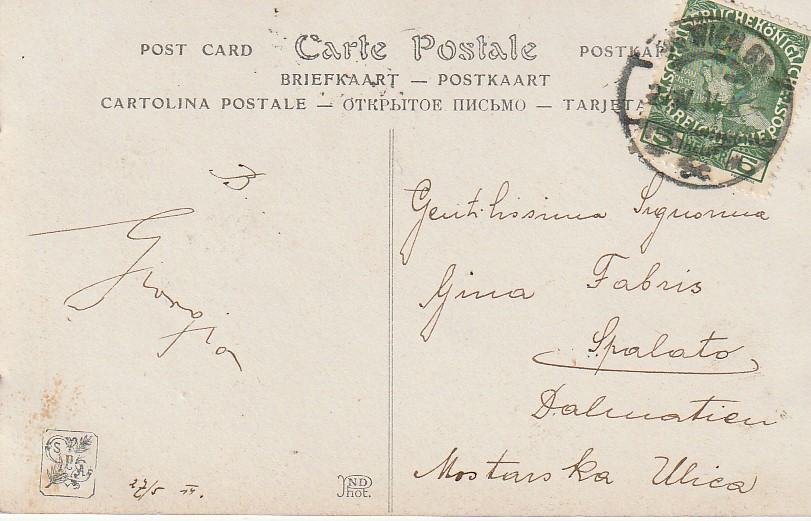 POST CARD Carte Postale POSTKAR
BRIEFKAART — POSTKAART
CARTOLINA POSTALE — ОТКРЫТОЕ ПИСЬМО — TARJETA
KAISERLICHEKÖNIGLICHE
ÖSTERREICHISCHEPOST
5 HELLER 5
WIEN
B.
Giorgia
Gentilissima Signorina
Gina Fabris
Spalato
Dalmatien
Mostarska Ulica
27/5 14.
ND
Phot.